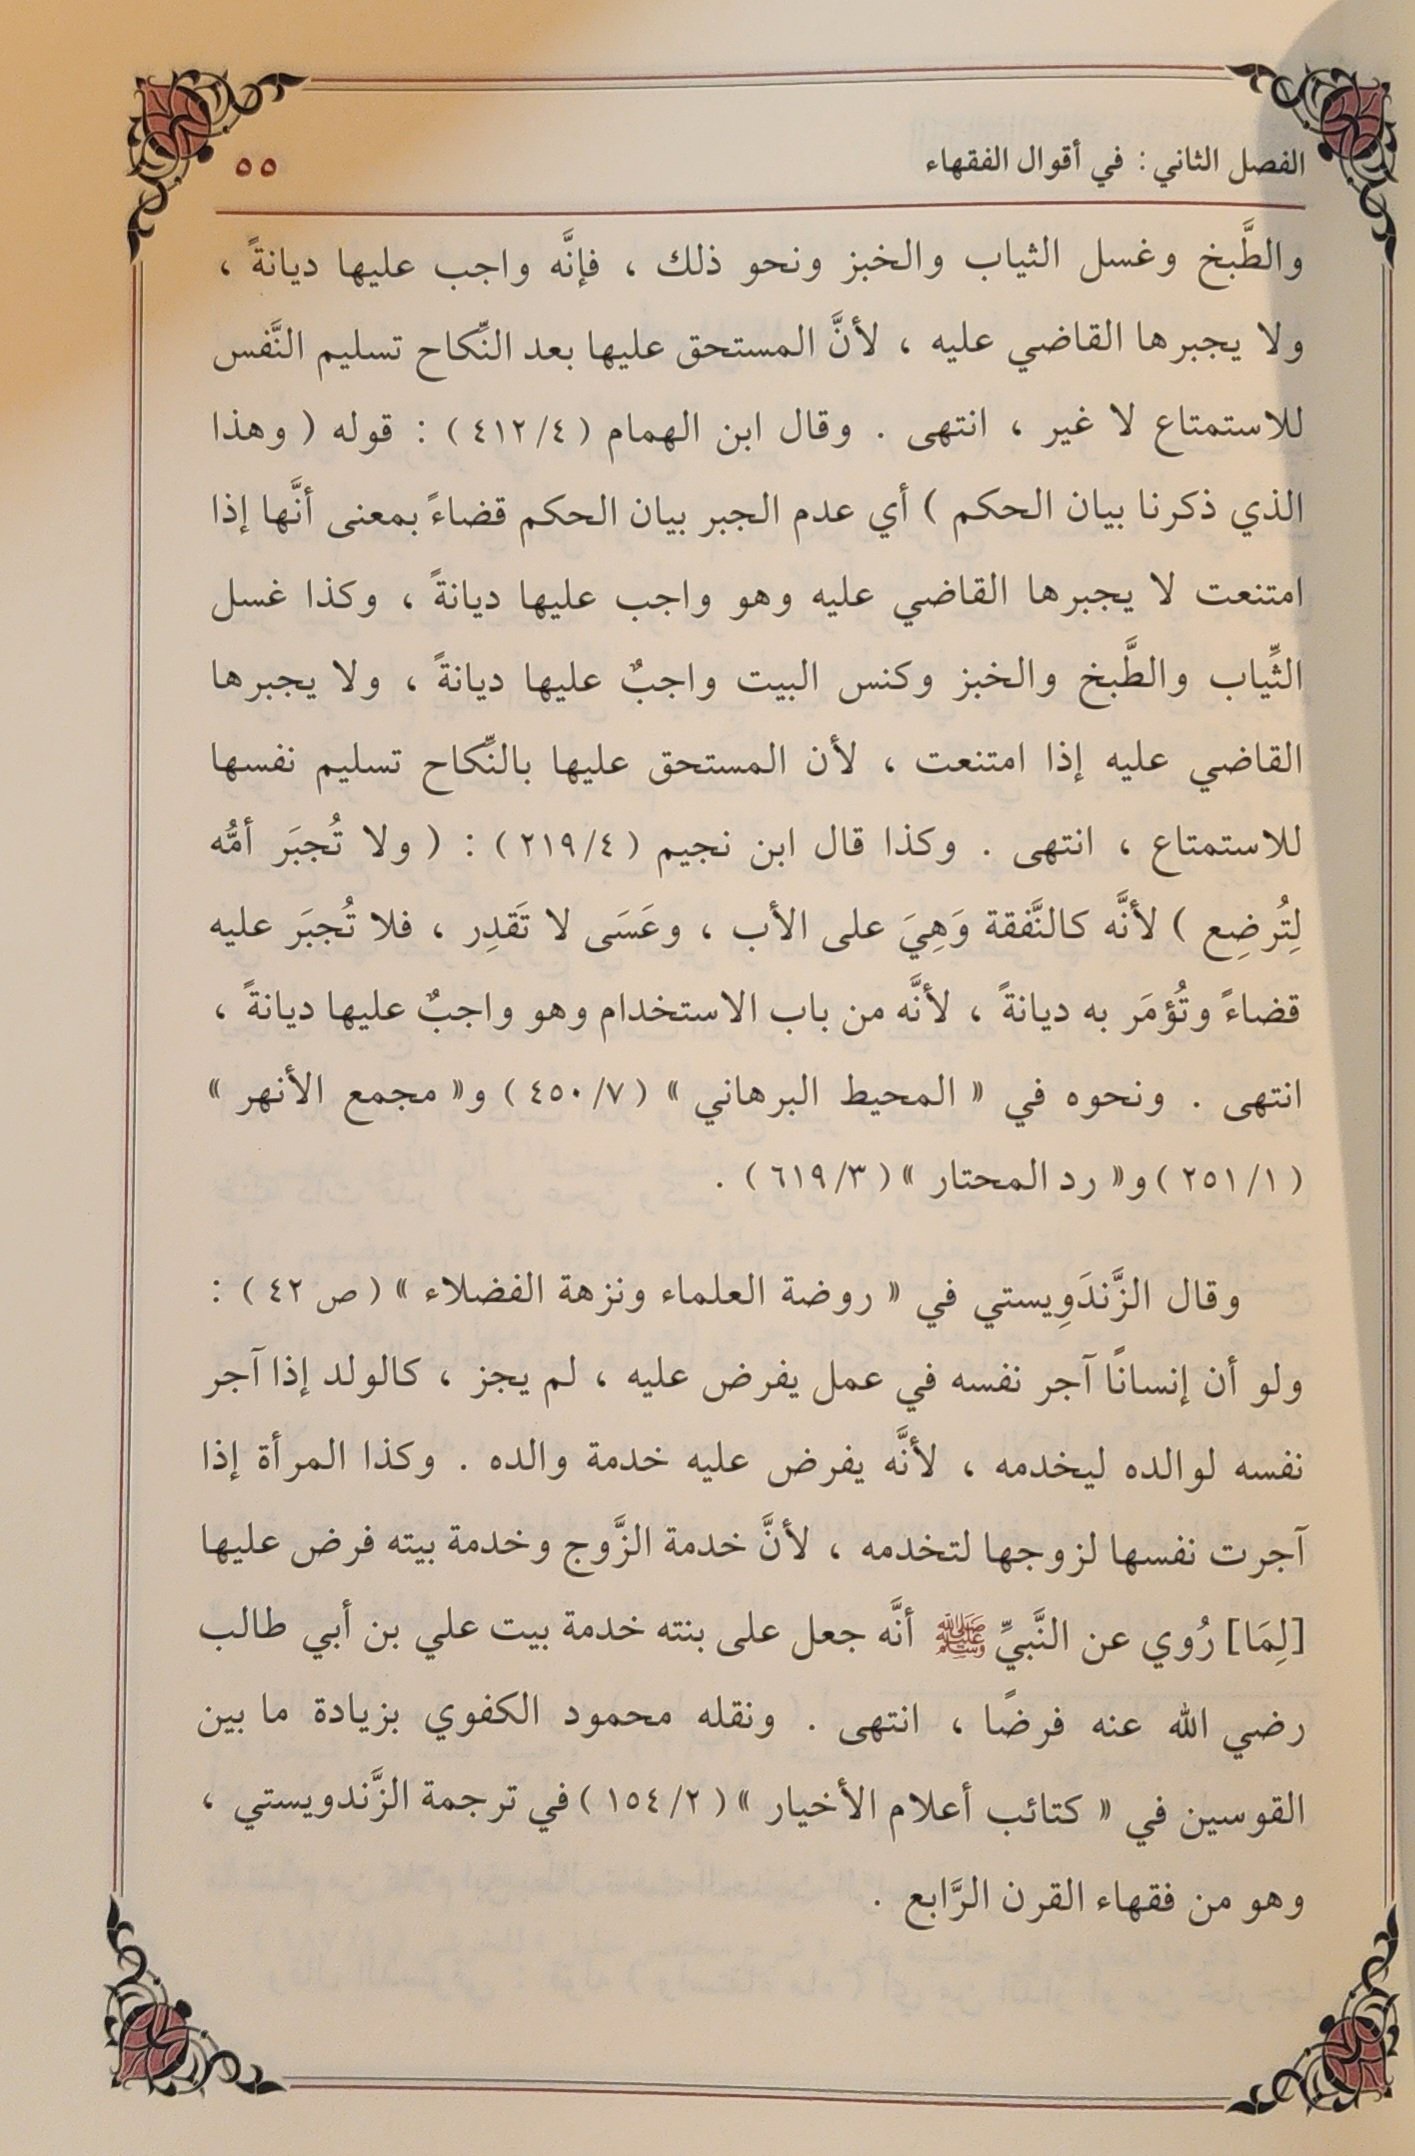 الفصل الثاني : في أقوال الفقهاء ٥٥
والطَّبخ وغسل الثياب والخبز ونحو ذلك ، فإنَّه واجب عليها ديانةً ،
ولا يجبرها القاضي عليه ، لأنَّ المستحق عليها بعد النِّكاح تسليم النَّفس
للاستمتاع لا غير ، انتهى . وقال ابن الهمام ( ٤١٢/٤ ) : قوله ( وهذا
الذي ذكرنا بيان الحكم ) أي عدم الجبر بيان الحكم قضاءً بمعنى أنَّها إذا
امتنعت لا يجبرها القاضي عليه وهو واجب عليها ديانةً ، وكذا غسل
الثِّياب والطَّبخ والخبز وكنس البيت واجبٌ عليها ديانةً ، ولا يجبرها
القاضي عليه إذا امتنعت ، لأن المستحق عليها بالنِّكاح تسليم نفسها
للاستمتاع ، انتهى . وكذا قال ابن نجيم ( ٢١٩/٤ ) : ( ولا تُجبَر أمُّه
لِتُرضِع ) لأنَّه كالنَّفقة وَهِيَ على الأب ، وعَسَى لا تَقدِر ، فلا تُجبَر عليه
قضاءً وتُؤمَر به ديانةً ، لأنَّه من باب الاستخدام وهو واجبٌ عليها ديانةً ،
انتهى . ونحوه في « المحيط البرهاني » ( ٤٥٠/٧ ) و« مجمع الأنهر »
( ٢٥١/١ ) و« رد المحتار » ( ٦١٩/٣ ) .
وقال الزَّندَوِيستي في « روضة العلماء ونزهة الفضلاء » ( ص ٤٢ ) :
ولو أن إنسانًا آجر نفسه في عمل يفرض عليه ، لم يجز ، كالولد إذا آجر
نفسه لوالده ليخدمه ، لأنَّه يفرض عليه خدمة والده . وكذا المرأة إذا
آجرت نفسها لزوجها لتخدمه ، لأنَّ خدمة الزَّوج وخدمة بيته فرض عليها
[لِمَا] رُوي عن النَّبيِّ ﷺ أنَّه جعل على بنته خدمة بيت علي بن أبي طالب
رضي الله عنه فرضًا ، انتهى . ونقله محمود الكفوي بزيادة ما بين
القوسين في « كتائب أعلام الأخيار » ( ١٥٤/٢ ) في ترجمة الزَّندويستي ،
وهو من فقهاء القرن الرَّابع .